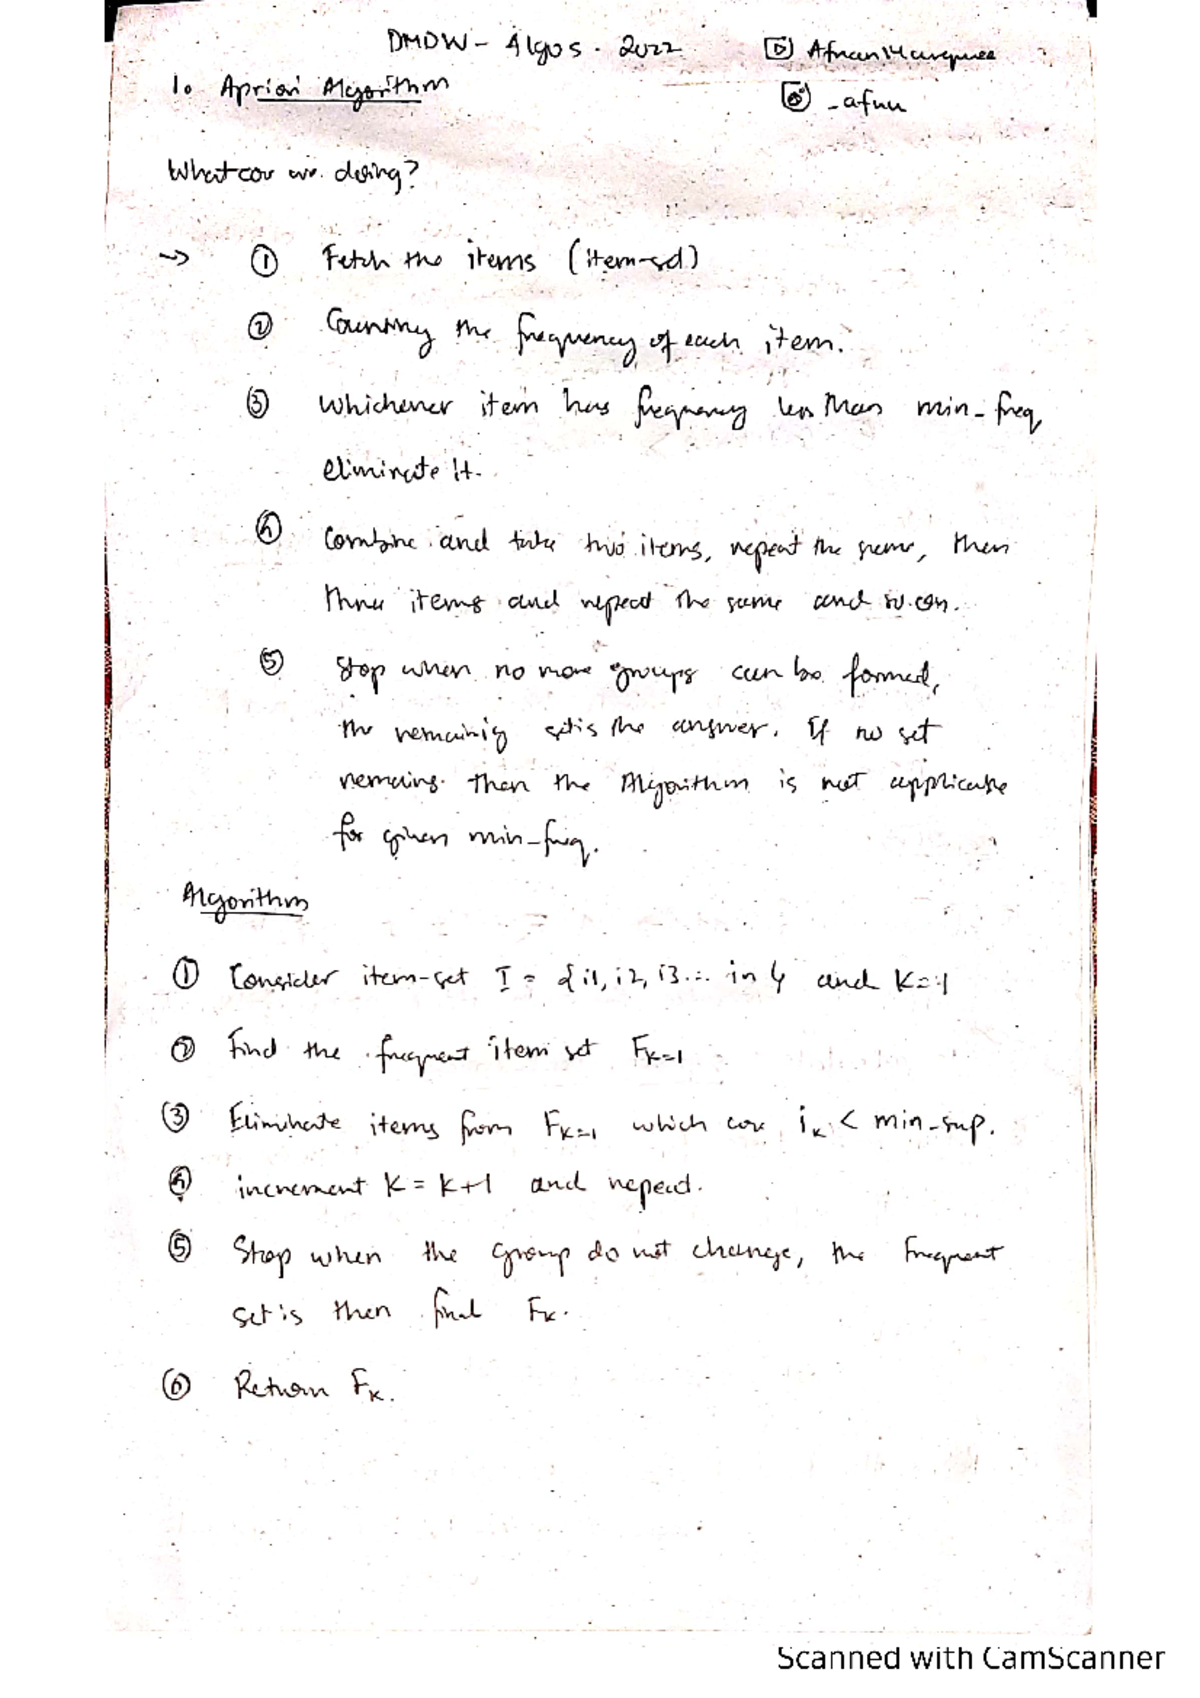 DMDW - Algos. 2022
Afnan Marquee
1. Apriori Algorithm
_afnu
What are we doing?
→ ① Fetch the items (item-set)
② Counting the frequency of each item.
③ Whichever item has frequency less than min-freq
eliminate it.
④ Combine and take two items, repeat the same, then
three items and repeat the same and so on.
⑤ Stop when no more groups can be formed,
the remaining set is the answer. If no set
remains then the Algorithm is not applicable
for given min-freq.
Algorithm
① Consider item-set I = {i1, i2, i3... in} and K=1
② Find the frequent item set FK=1
③ Eliminate items from FK=1 which are iK < min-sup.
④ increment K = K+1 and repeat.
⑤ Stop when the group do not change, the frequent
set is then final FK.
⑥ Return FK.
Scanned with CamScanner